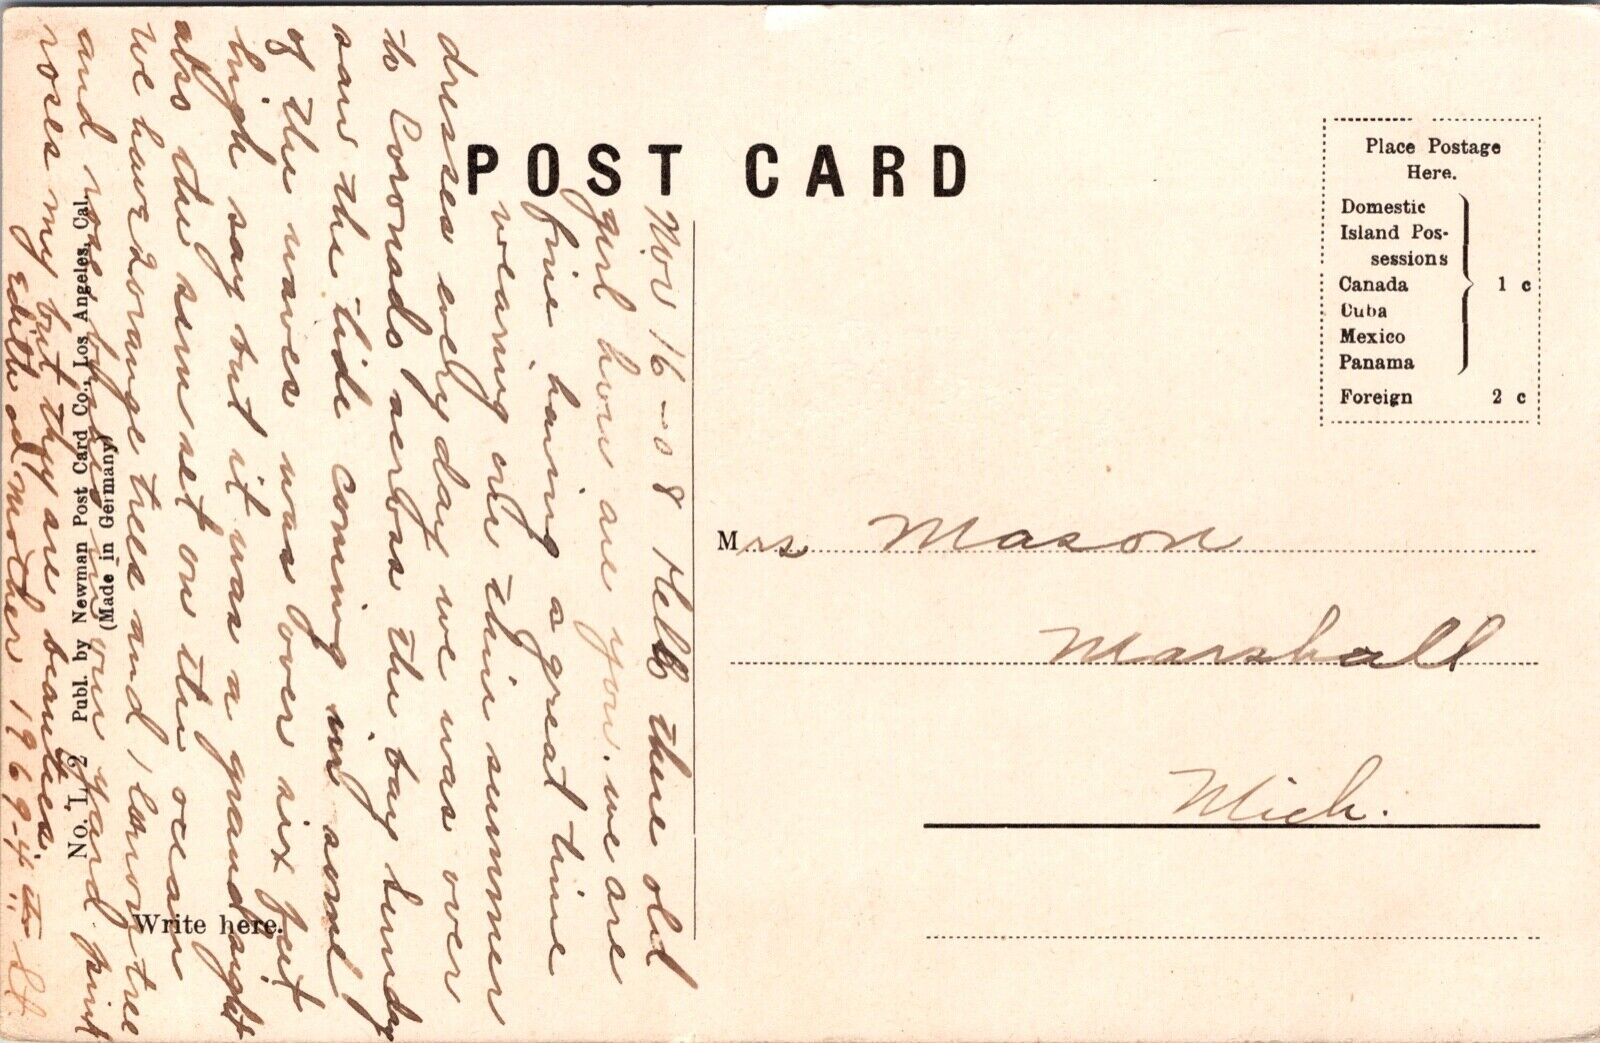 POST CARD
Place Postage
Here.
Domestic
Island Pos-
sessions
Canada
Cuba
Mexico
Panama
1 c
Foreign 2 c
Mrs Mason
Marshall
Mich.
Write here.
No. L 2 Publ. by Newman Post Card Co., Los Angeles, Cal.
(Made in Germany)
Nov 16 - 08 Hello there old
girl how are you. we are
fine having a great time
wearing our thin summer
dresses every day we was over
to Coronado across the bay Sunday
saw the tide coming in some
of the waves was over six feet
high say but it was a grand sight
also the sun set on the ocean
we have 2 orange trees and 1 lemon tree
and rose in our yard pink
roses my but they are beauties.
Edith and mother 1969-4th St.